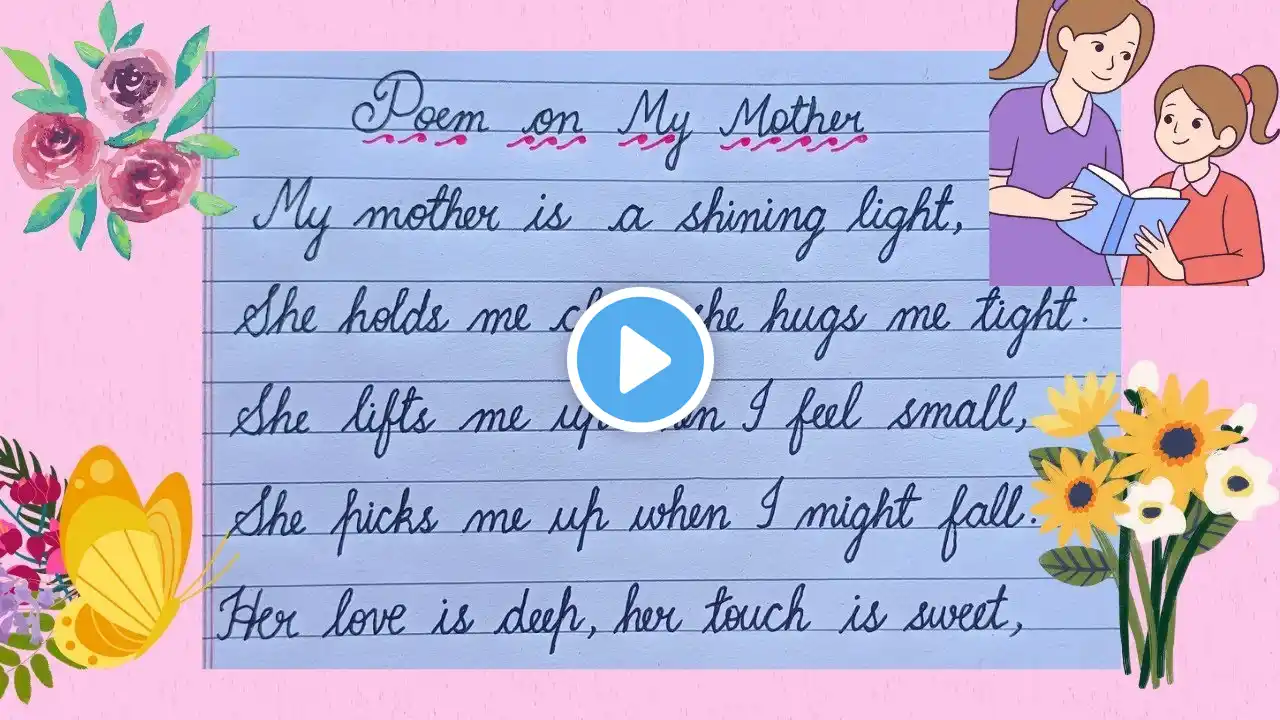 Poem on My Mother
My mother is a shining light,
She holds me she hugs me tight.
She lifts me up when I feel small,
She picks me up when I might fall.
Her love is deep, her touch is sweet,